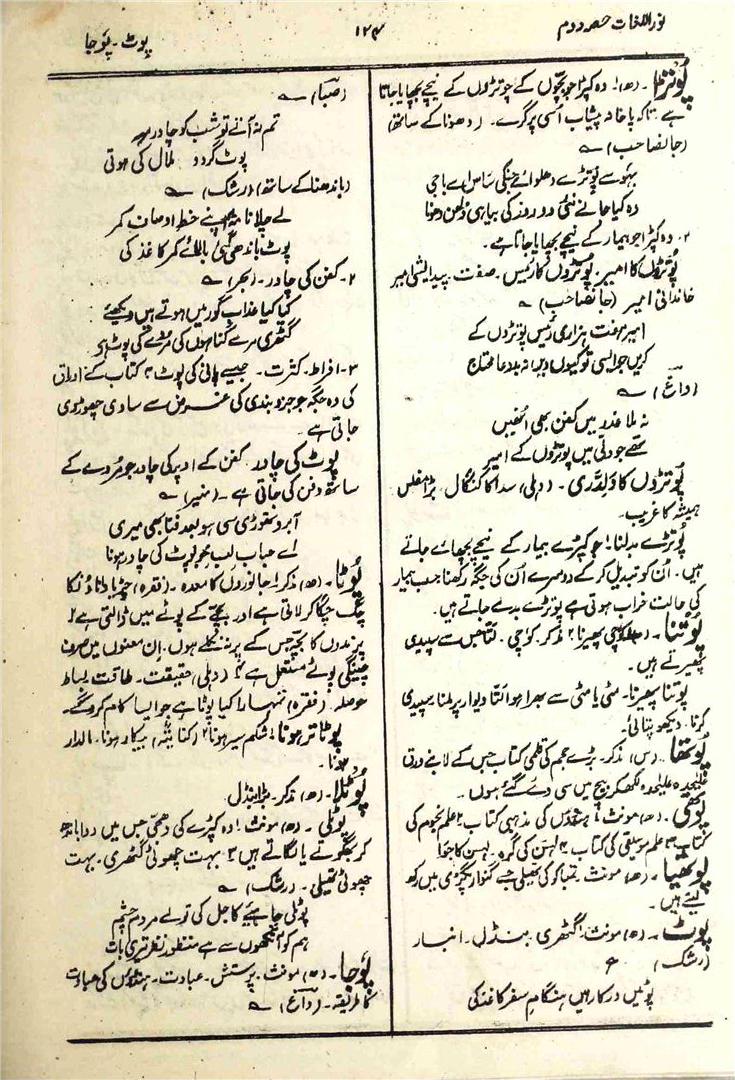 نور اللغات حصہ دوم
۱۲۴
پوٹ - پُوجا
پُوتڑا - (ھ) ۱. وہ کپڑا جو بچّوں کے چوتڑوں کے نیچے بچھایا جاتا
ہے تاکہ پاخانہ پیشاب اُسی پر گرے - (دھونا کے ساتھ)
(جانصاحب) ؎
بہو سے پوتڑے دھلوائے جنگی ساس اے باجی
وہ کیا جانے نئی دو روز کی بیاہی دُلھن دھونا
۲. وہ کپڑا جو بیمار کے نیچے بچھایا جاتا ہے -
پُوتڑوں کا امیر. پُوتڑوں کا رئیس - صفت - پیدایشی امیر
خاندانی امیر (جانصاحب) ؎
امیر ہفت ہزاری رئیس پوتڑوں کے
کریں جو ایسی تو کیوں نہ بددعا محتاج
(داغ) ؎
نہ ملا غدر میں کفن بھی اُنھیں
تھے جو دلّی میں پوتڑوں کے امیر
پُوتڑوں کا دَلِدَّری - (دہلی) سدا کا کنگال بڑا مفلس
ہمیشہ کا غریب -
پُوتڑے بدلنا ! جو کپڑے بیمار کے نیچے بچھائے جاتے
ہیں . اُن کو تبدیل کر کے دوسرے اُن کی جگہ رکھنا جب بیمار
کی حالت خراب ہوتی ہے پوتڑے بدلے جاتے ہیں -
پُوتنا - پھیرنا ۲ مذکر . کوچی . لتّا جس سے سپیدی
پھیرتے ہیں -
پوتنا پھیرنا - مٹی یا مٹی سے بھرا ہوا لتّا دیوار پر ملنا سپیدی
کرنا . دیکھو پتائی -
پُوتھا - (س) مذکر . بڑے حجم کی قلمی کتاب جس کے لانبے ورق
علیحدہ علیحدہ لکھ کر بیچ میں سی دیے گئے ہوں -
پوتھی - (ھ) مونث ۱ ہندؤں کی مذہبی کتاب ۲ علم نجوم کی
کتاب ۳ علم موسیقی کی کتاب ۴ لہسن کی گرہ . لہسن کا جَوا
پُوتھیا - (ھ) مونث . تمباکو کی تھیلی جسے گنوار پگڑی میں رکھ
لیتے ہیں -
پوٹ - (ھ) مونث ! گٹھری . بنڈل . انبار
(رشک) ع
پوٹیں درکار ہیں ہنگامِ سفر کاغذ کی
(صبا) ؎
تم نہ آئے تو شب کو چادرِ مہ
پوٹ گردِ ملال کی ہوتی
(باندھنا کے ساتھ) (رشک) ؎
لے چلا نامہ بر اپنے خطِ اوصافِ کمر
پوٹ باندھی گئی بالائے کمر کاغذ کی
۲- کفن کی چادر - (بحر) ؎
کیا کیا عذاب گور میں ہوتے ہیں دیکھیے
گٹھری مرے گناہوں کی مردے کی پوٹ ہے
۳- افراط . کثرت - جیسے پانی کی پوٹ ۴ کتاب کے اوراق
کی وہ جگہ جو جزو بندی کی غرض سے سادی چھوڑ دی
جاتی ہے -
پوٹ کی چادر . کفن کے اوپر کی چادر جو مُردے کے
ساتھ دفن کی جاتی ہے - (منیر) ؎
آبرو تھوڑی سی ہو بعدِ فنا بھی میری
اے حباب لبِ جُو پوٹ کی چادر ہونا
پُوٹا - (ھ) مذکر ! جانوروں کا معدہ - (فقرہ) چڑیا دانا دُنکا
چگ چگا کر لاتی ہے اور بچّے کے پوٹے میں ڈالتی ہے ۲
پرندوں کا بچہ جس کے پر نہ نکلے ہوں - اِن معنوں میں صرف
چینگی پوٹے مستعمل ہے ۳ (دہلی) حقیقت - طاقت بساط
حوصلہ (فقرہ) تمہارا کیا پوٹا ہے جو ایسا کام کرو گے -
پوٹا تر ہونا ! شکم سیر ہونا ۲ (کنایۃً) بیکار ہونا - مالدار
ہونا -
پُوٹلا - (ھ) مذکر - بڑا بنڈل
پوٹلی - (ھ) مونث ! وہ کپڑے کی دھجی جس میں دوا باندھ
کر بھگوتے یا لگاتے ہیں ۲ بہت چھوٹی گٹھری - بہت
چھوٹی تھیلی - (رشک) ؎
پوٹلی چاہیے کاجل کی تو لے مردمِ چشم
ہم کو آنکھوں سے ہے منظورِ نظر تیری بات
پُوجا - (ھ) مونث . پرستش - عبادت - ہندؤں کی عبادت
کا طریقہ - (داغ) ؎